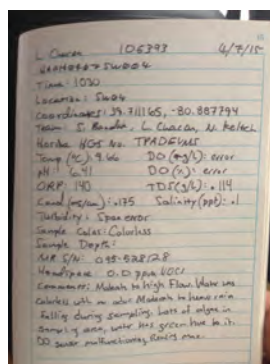 L. Chacon 106393 4/7/15
Time: 1030
Location: SW04
Coordinates: 39.711165, -80.887794
Team: S. L. Chacon, N. Keltech
Horiba HGS No. TPADEUMS
Temp (°C): 9.66 DO (mg/L): error
pH: 6.41 DO (%): error
ORP: 140 TDS (g/L): .114
Cond (ms/cm): .175 Salinity (ppt): .1
Turbidity: Span error
Sample Color: Colorless
Sample Depth:
S/N: 095-928128
Headspace 0.0 ppm VOCs
Comments: Moderate to high Flow. Water was
colorless with no odor. Moderate to heavy rain
falling during sampling. Lots of algae in
sampling area, water has green hue to it.
DO sensor malfunctioning,